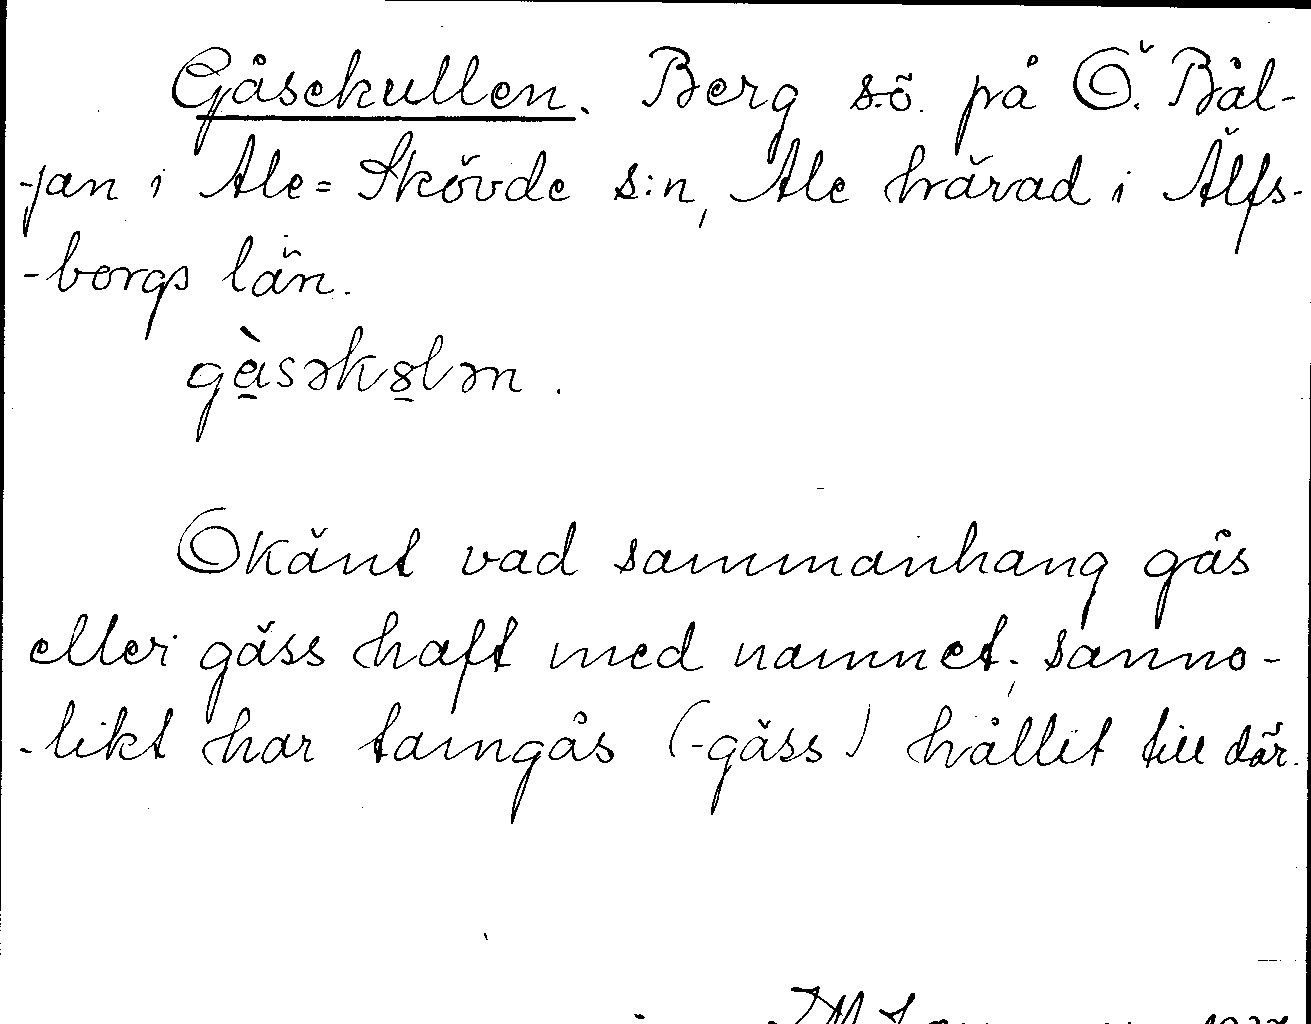 Gåsekullen. Berg sö. på Ö. Bål-
-jan i Ale=Skövde s:n, Ale härad i Älfs-
-borgs län.
gàsəkȣlən.
Okänt vad sammanhang gås
eller gäss haft med namnet; sanno-
-likt har tamgås (-gäss) hållit till där.